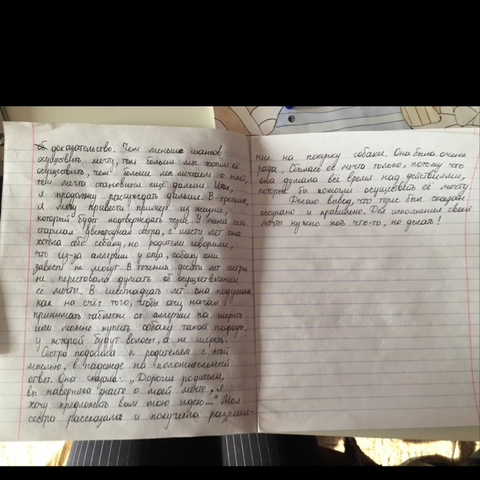 доказательство. Чем меньше шансов
осуществить мечту, тем больше мы хотим её
осуществить, чем больше мы мечтаем о ней,
тем мечта становится ещё дальше. Итак,
я продолжу рассуждать дальше. В третьих,
я могу привести пример из жизни,
который будет подтверждать тезис. У меня есть
старшая двоюродная сестра, с шести лет она
хотела себе собаку, но родители говорили,
что из-за аллергии у отца, собаку они
завести не могут. В течении десяти лет сестра
не переставала думать об осуществлении
её мечты. В шестнадцать лет она подумала
как на счёт того, чтобы отец начал
принимать таблетки от аллергии на шерсть
или можно купить собаку такой породы,
у которой будут волосы, а не шерсть.
Сестра подошла к родителям с этой
мыслью, в надежде на положительный
ответ. Она сказала: „Дорогие родители,
вы наверняка знаете о моей мечте, я
хочу предложить вам мою идею..." Моя
сестра рассказала и получила разреше-
ние на покупку собаки. Она была очень
рада. Сбылась её мечта только, потому что
она думала всё время над действиями,
которые бы помогли осуществить её мечту.
Делаю вывод, что тезис был сказан
осознано и правильно. Для исполнения своей
мечты нужно хоть что-то, но делать!